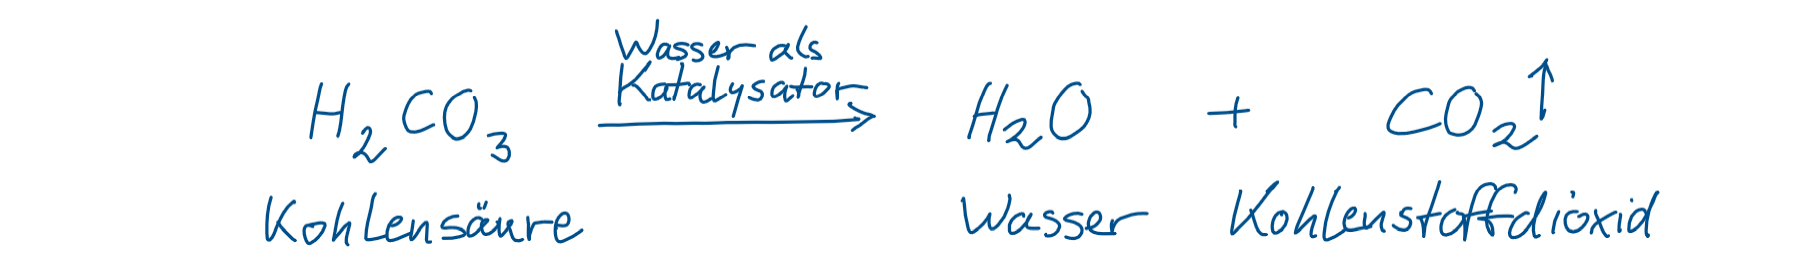 Wasser als
Katalysator
H₂CO₃ → H₂O + CO₂↑
Kohlensäure Wasser Kohlenstoffdioxid